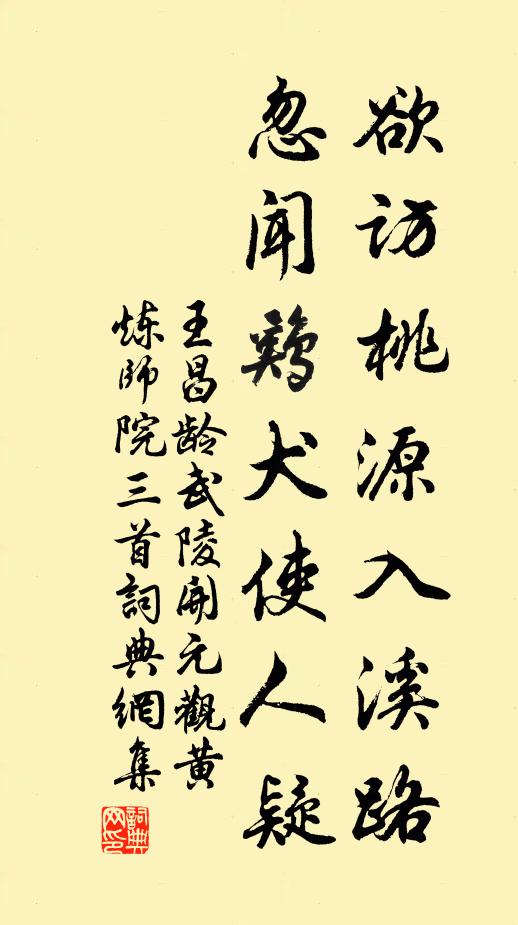 欲访桃源入溪路
忽闻鸡犬使人疑
王昌龄武陵开元觀黄
炼師院三首詞典網集
詞典网印